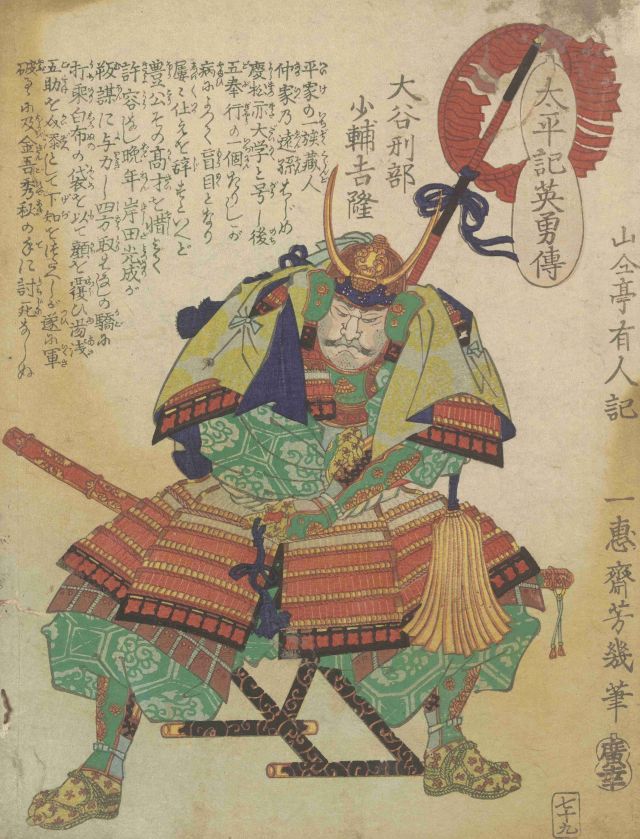 太平記英勇傳
山仝亭有人記
一惠齋芳幾筆
七十九
大谷刑部
少輔吉隆
平家の一族蔵人
仲家の遠孫はじめ
慶松 大学と号し後
五奉行の一個たりしが
病によつて盲目となり
屡に仕を辞すといへど
豊公その高才を惜みて
許容なし晩年岸田光成が
叛謀に与力し四方取 の驕に
打乗白布の袋を以て顔を覆ひ湯浅
五助を として下知を しが遂に軍
破るに及金吾秀秋の手に討死しぬ